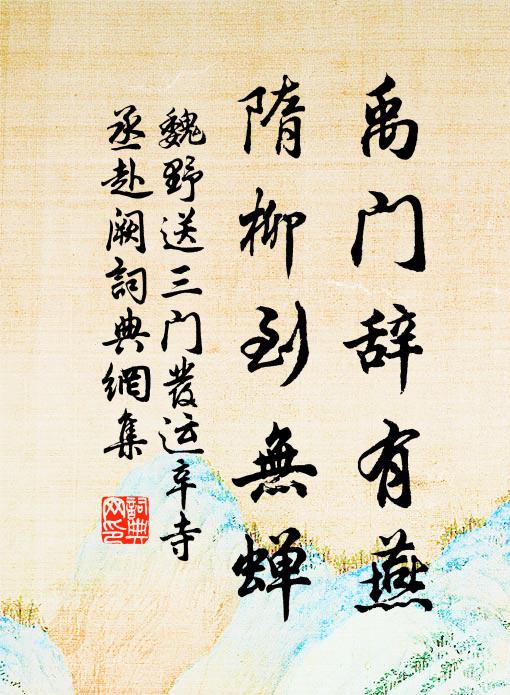 禹门辞有燕
隋柳到無蝉
魏野送三门發运辛寺
丞赴阙詞典網集
詞典网印